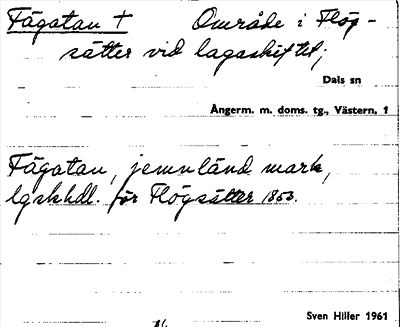 Fägatan † Område i Flög-
sätter vid lagaskiftet;
Dals sn
Ångerm. m. doms. tg., Västern. 1
Fägatan, jemnländ mark,
lgskhdl. för Flögsätter 1853.
Sven Hiller 1961